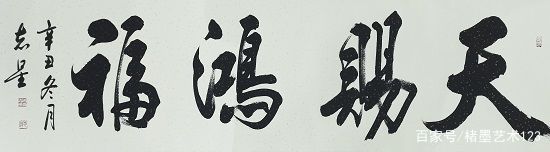 天賜鴻福
辛丑冬月
志星
百家号/楮墨艺术123